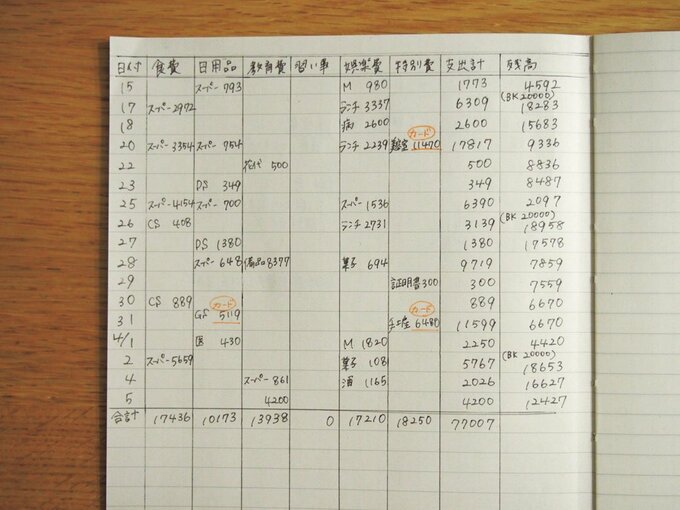 日付 食費 日用品 教育費 習い事 娯楽費 特別費 支出計 残高
15 スーパー 793 M 980 1773 4592
17 スーパー 2972 ランチ 3337 6309 (BK 20000) 18283
18 病 2600 2600 15683
20 スーパー 3354 スーパー 754 ランチ 2239 カード 11470 17817 9336
22 花代 500 500 8836
23 DS 349 349 8487
25 スーパー 4154 スーパー 700 スーパー 1536 6390 2097
26 CS 408 ランチ 2731 3139 (BK 20000) 18958
27 DS 1380 1380 17578
28 スーパー 648 備品 8377 菓子 694 9719 7859
29 証明書 300 300 7559
30 CS 889 889 6670
31 GF カード 5119 手土産 カード 6480 11599 6670
4/1 医 430 M 1820 2250 4420
2 スーパー 5659 菓子 108 5767 (BK 20000) 18653
4 スーパー 861 酒 1165 2026 16627
5 4200 4200 12427
合計 17436 10173 13938 0 17210 18250 77007